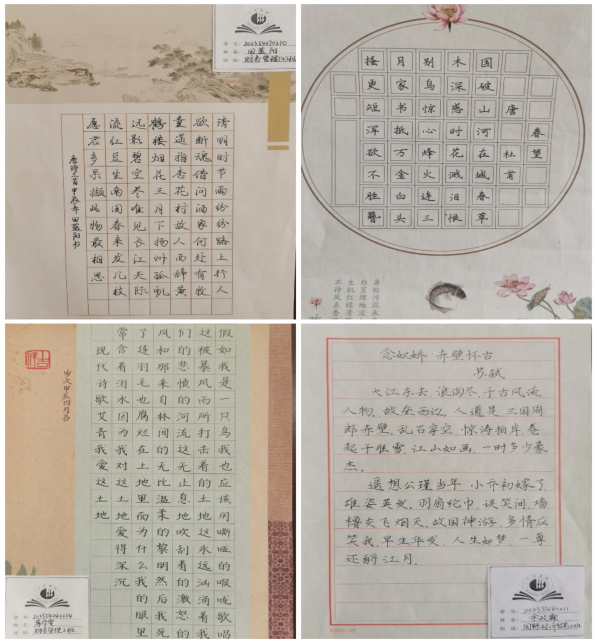 清明时节雨纷纷路上行人
欲断魂借问酒家何处有牧
童遥指杏花村故人西辞黄
鹤楼烟花三月下扬州孤帆
远影碧空尽唯见长江天际
流红豆生南国春来发几枝
愿君多采撷此物最相思
唐诗三首甲辰年田蓝阳书
田蓝阳
春望
唐杜甫
国破山河在城春草
木深感时花溅泪恨
别鸟惊心烽火连三
月家书抵万金白头
搔更短浑欲不胜簪
身处污泥未
白茎埋地没
生机红绿清
不待风来香
假如我是一只鸟我也应该用嘶哑的喉咙歌唱
这被暴风雨所打击着的土地这永远汹涌着我
们的悲愤的河流这无止息地吹刮着的激怒的
风和那来自林间的无比温柔的黎明然后我死
了连羽毛也腐烂在土地里面为什么我的眼里
常含着泪水因为我对这土地爱得深沉
现代诗歌艾青我爱这土地
岁次甲辰四月书
念奴娇 赤壁怀古
苏轼
大江东去 浪淘尽,千古风流
人物,故垒西边,人道是三国周
郎赤壁,乱石穿空,惊涛拍岸,卷
起千堆雪,江山如画 一时多少豪
杰。
遥想公瑾当年 小乔初嫁了
雄姿英发,羽扇纶巾,谈笑间,墙
橹灰飞烟灭,故国神游,多情应
笑我,早生华发,人生如梦,一尊
还酹江月。